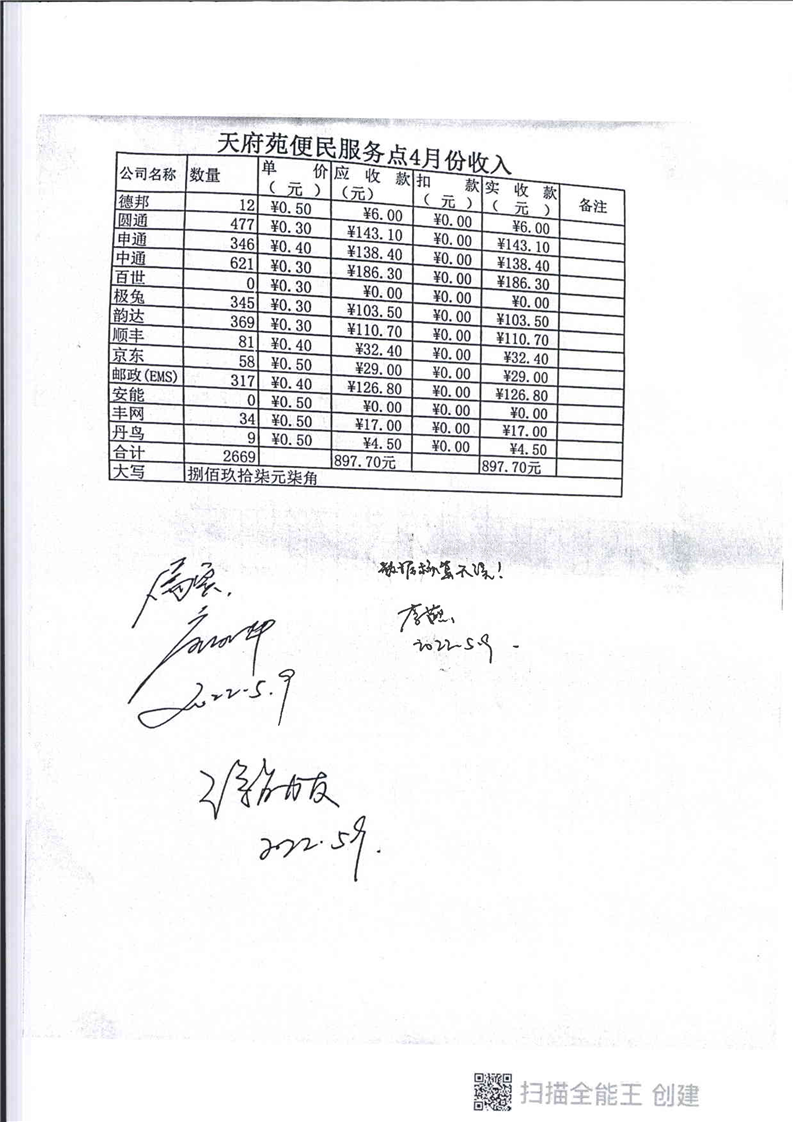 天府苑便民服务点4月份收入
公司名称 数量 单价（元） 应收款（元） 扣款（元） 实收款（元） 备注
德邦 12 ¥0.50 ¥6.00 ¥0.00 ¥6.00
圆通 477 ¥0.30 ¥143.10 ¥0.00 ¥143.10
申通 346 ¥0.40 ¥138.40 ¥0.00 ¥138.40
中通 621 ¥0.30 ¥186.30 ¥0.00 ¥186.30
百世 0 ¥0.30 ¥0.00 ¥0.00 ¥0.00
极兔 345 ¥0.30 ¥103.50 ¥0.00 ¥103.50
韵达 369 ¥0.30 ¥110.70 ¥0.00 ¥110.70
顺丰 81 ¥0.40 ¥32.40 ¥0.00 ¥32.40
京东 58 ¥0.50 ¥29.00 ¥0.00 ¥29.00
邮政(EMS) 317 ¥0.40 ¥126.80 ¥0.00 ¥126.80
安能 0 ¥0.50 ¥0.00 ¥0.00 ¥0.00
丰网 34 ¥0.50 ¥17.00 ¥0.00 ¥17.00
丹鸟 9 ¥0.50 ¥4.50 ¥0.00 ¥4.50
合计 2669 897.70元 897.70元
大写 捌佰玖拾柒元柒角
属实.
2022.5.9
2022.5.9
2022.5.9.
扫描全能王 创建